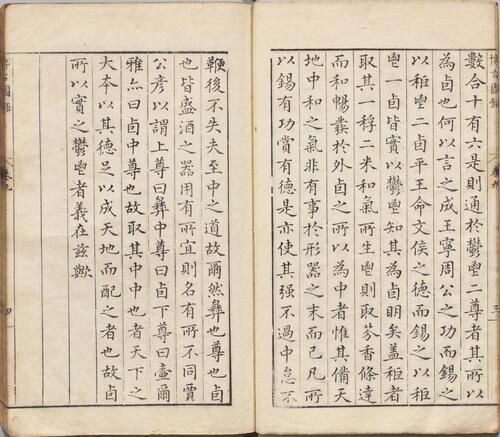 數合十有六是則通於鬱鬯二尊者其所以
為卣也何以言之成王寧周公之功而錫之
以秬鬯二卣平王命文侯之德而錫之以秬
鬯一卣皆實以鬱鬯知其為卣明矣蓋秬者
取其一稃二米和氣所生鬯則取芬香條達
而和暢發於外卣之所以為中者惟其備天
地中和之氣非有事於形器之末而已凡所
以錫有功賞有德是亦使其强不過中怠不
鞭後不失夫至中之道故爾然彝也尊也卣
也皆盛酒之器用有所宜則名有所不同賈
公彦以謂上尊曰彝中尊曰卣下尊曰壷爾
雅亦曰卣中尊也故取其中中也者天下之
大本以其德足以成天地而配之者也故卣
所以實之鬱鬯者義在兹歟